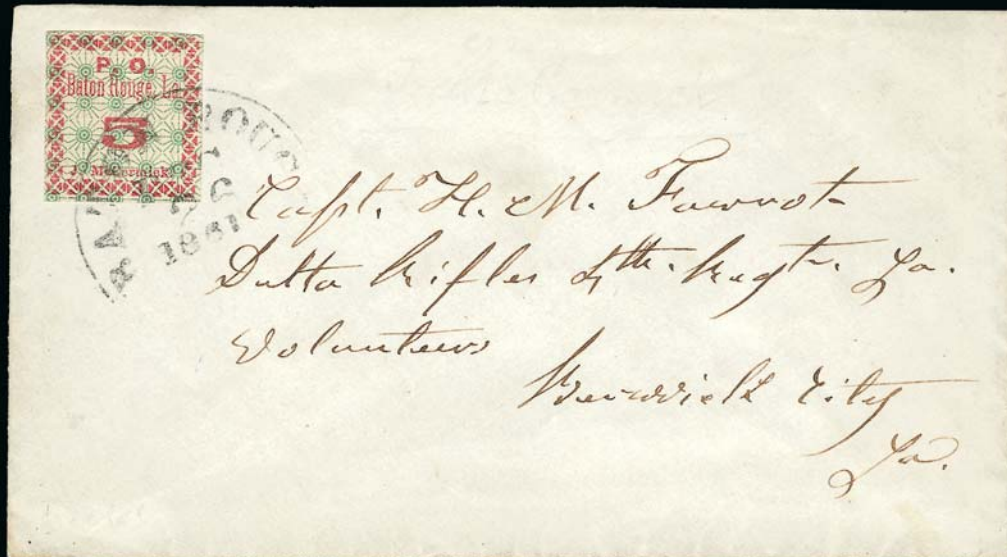 P. O.
Baton Rouge, La.
5
J. McCormick
BATON ROUGE
1861
Capt. H. M. Favrot
Delta Rifles 4th. Regt. La.
Volunteers
Berwick City
La.